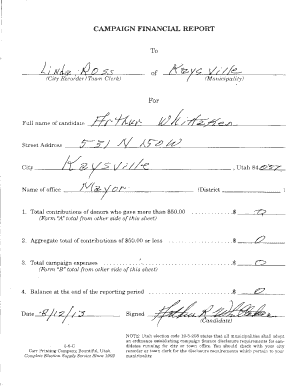 CAMPAIGN FINANCIAL REPORT
To
Linda Ross of Kaysville
(City Recorder/Town Clerk) (Municipality)
For
Full name of candidate Arthur Whittaker
Street Address 551 N 150 W
City Kaysville, Utah 84037
Name of office Mayor (District )
1. Total contributions of donors who gave more than $50.00 $ 0
(Form "A" total from other side of this sheet)
2. Aggregate total of contributions of $50.00 or less $ 0
3. Total campaign expenses $ 0
(Form "B" total from other side of this sheet)
4. Balance at the end of the reporting period $ 0
Date 8/12/13 Signed Arthur R Whittaker
(Candidate)
Carr Printing Company, Bountiful, Utah
Complete Election Supply Service Since
NOTE: Utah election code 10-3-208 states that all municipalities shall adopt
an ordinance establishing campaign finance disclosure requirements for can-
didates running for city or town office. You should check with your city
recorder or town clerk for the disclosure requirements which pertain to your
municipality.